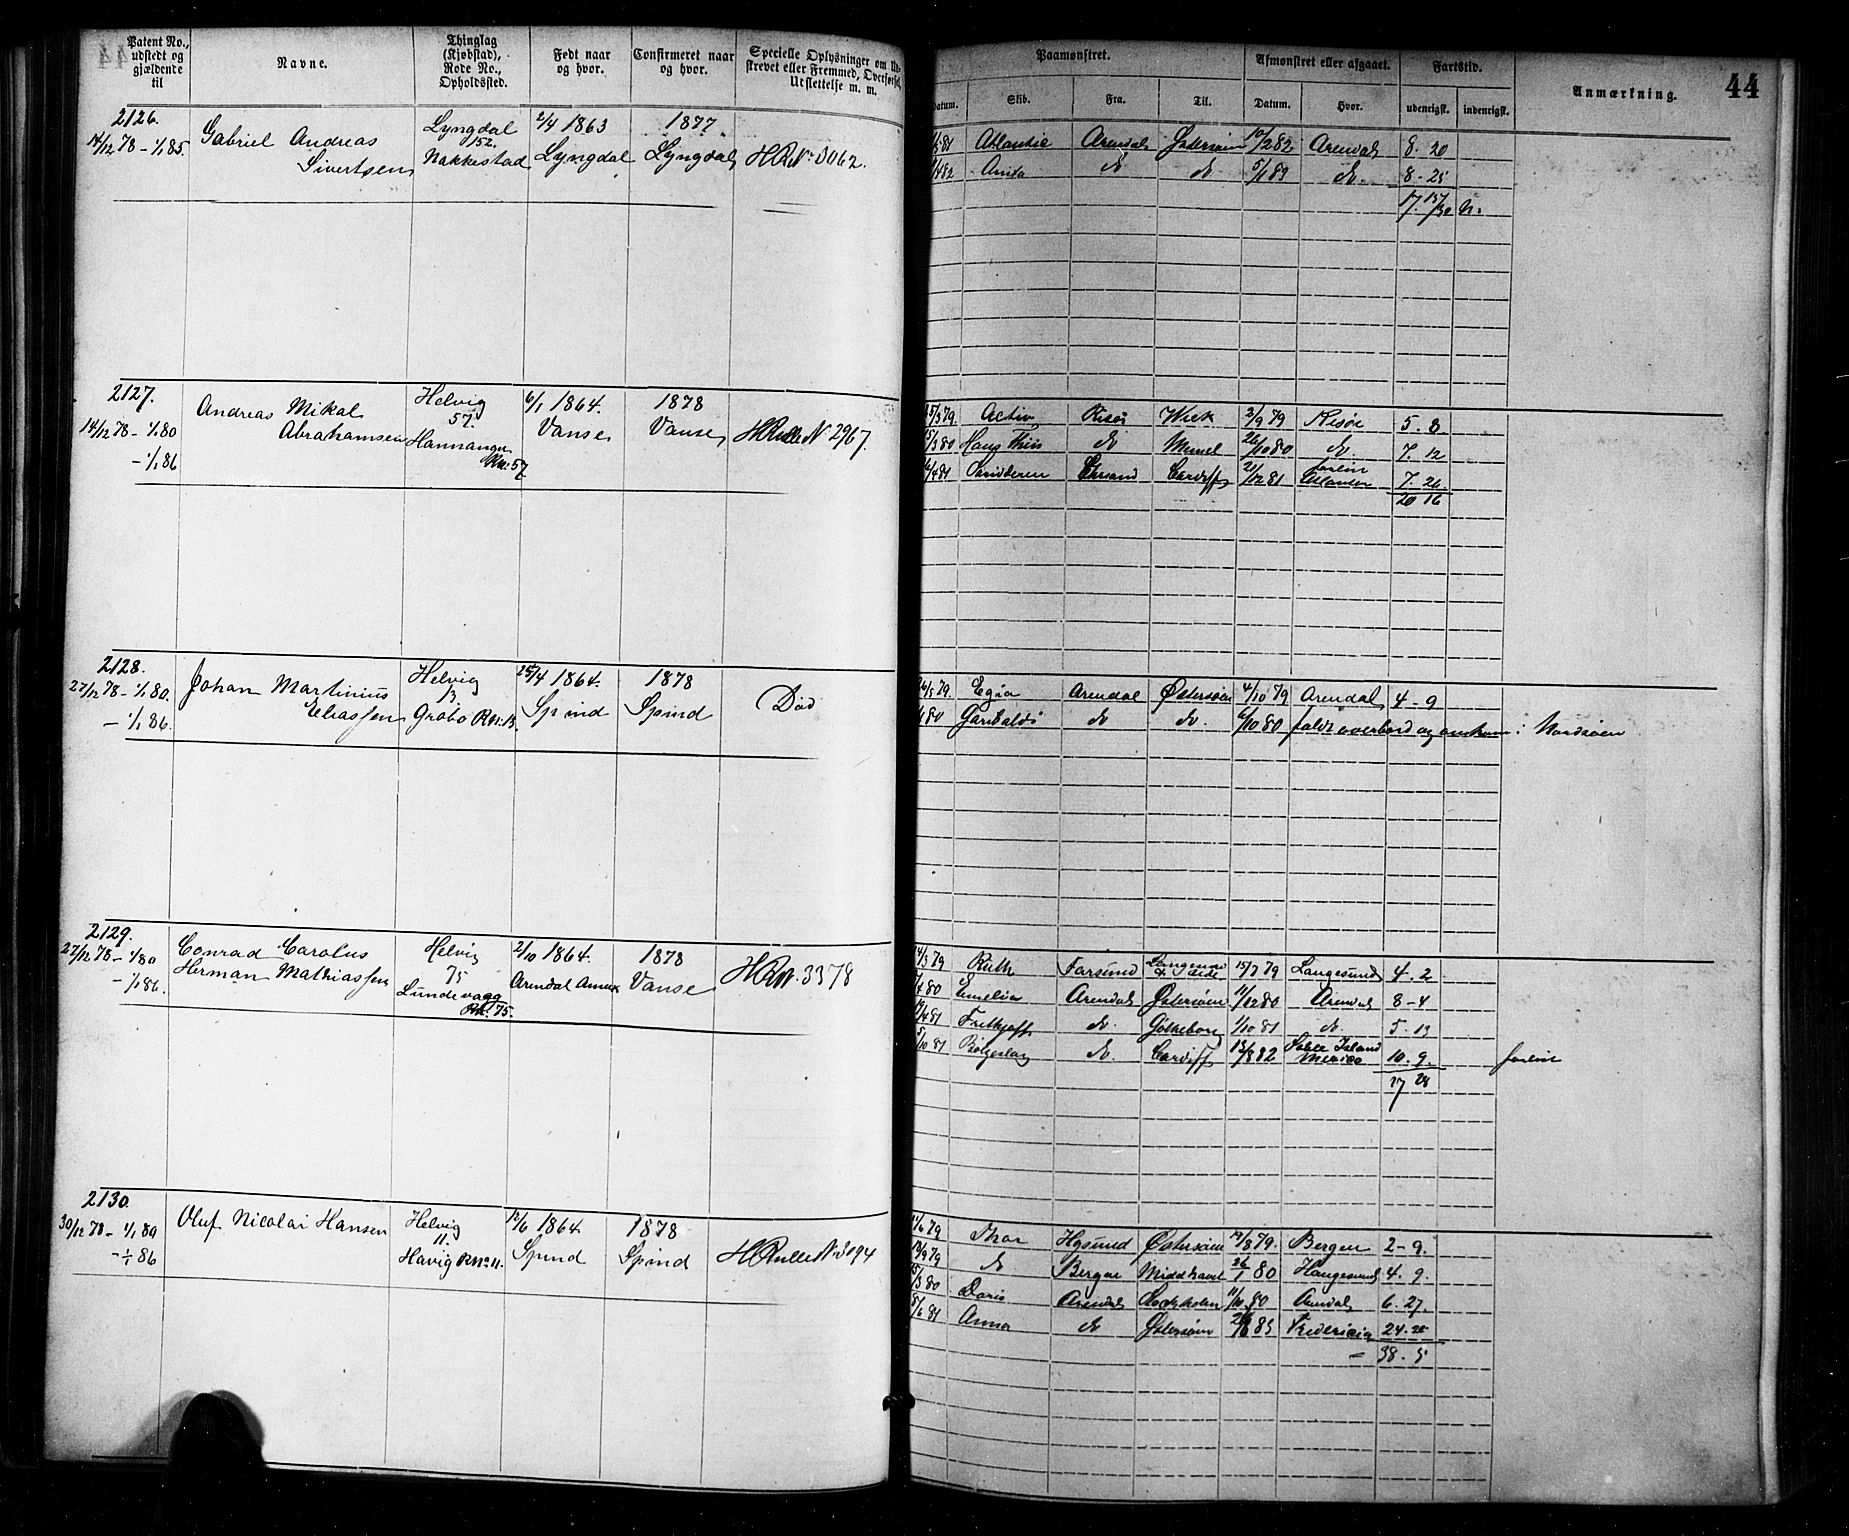 Patent No., udstedt og gjældende til
Navne.
Thinglag (Kjøbstad), Rode No., Opholdssted.
Født naar og hvor.
Confirmeret naar og hvor.
Specielle Oplysninger om
strevet eller Fremmed, Overførsel,
Utslettelse m. m.
Paamønstret.
Afmønstret eller afgaaet.
Fartstid.
Anmærkning.
44
Datum.
Skib.
Fra.
Til.
Datum.
Hvor.
udenrigsk.
indenrigsk.
2126.
14/12 78 - 1/1 85.
Gabriel Andreas
Sivertsen
Lyngdal
152.
Nakkestad
2/4 1863
Lyngdal
1877.
Lyngdal
HR No 3062.
Atlantic Arendal Østersøen 10/2 82 Arendal 8. 20
Anita do do 5/1 83 do. 8 - 25
17. 15/30 N.
2127.
14/12 78 - 1/1 80
- 1/1 86
Andreas Mikal
Abrahamsen
Helvig
57.
Hannanger
R No: 57
6/1 1864.
Vanse
1878
Vanse
HRulle No 2967.
5/3 79. Activ Risør Wick 2/9 79 Risør 5. 8
15/3 80 do Memel 26/10 80 do. 7. 12
6/4 81 Chrsand Cardiff 21/12 81 forlist Atlanten 7. 26.
20 16
2128.
27/12 78 - 1/1 80.
- 1/1 86.
Johan Martinius
Eliassen
Helvig
13
Grøbo R No: 13.
25/4 1864.
Spind
1878
Spind
Død
26/5 79. Egia Arendal Østersøen 4/10 79 Arendal 4 - 9
80 Garibaldi do do. 6/10 80 faldt overbord og omkom i Nordsøen
2129.
27/12 78 - 1/1 80
- 1/1 86.
Conrad Carolus
Herman Mathiassen
Helvig
75
Lundevagg
R No. 75.
2/10 1864.
Arendal Annex
1878
Vanse
HR No. 3378
14/3 79 Ruth Farsund 15/7 79 Langesund 4. 2
4 80 Emelia Arendal Østersøen 11/12 80 Arendal 8 - 4
4 81 Frithjoff do. Gøtheborg 1/10 81 do. 5. 13
5/10 81 do. Cardiff 13/8 82 Sable Island Mexico 10. 9. forlist
27 28
2130.
30/12 78 - 1/1 80
- 1/1 86
Oluf Nicolai Hansen
Helvig
11.
Havig R No: 11.
12/6 1864.
Spind
1878
Spind
HRulle No 3094
11/6 79 Thor Høgsund Østersøen 19/8 79. Bergen 2 - 9.
12/9 79 do Bergen Middhavet 26/1 80 Haugesund 4. 9.
15/3 80 Doris Arendal Stockholm 11/10 80 Arendal 6. 27.
8/6 81 Anna do Østersøen Fredericia 24. 28
- 38. 5